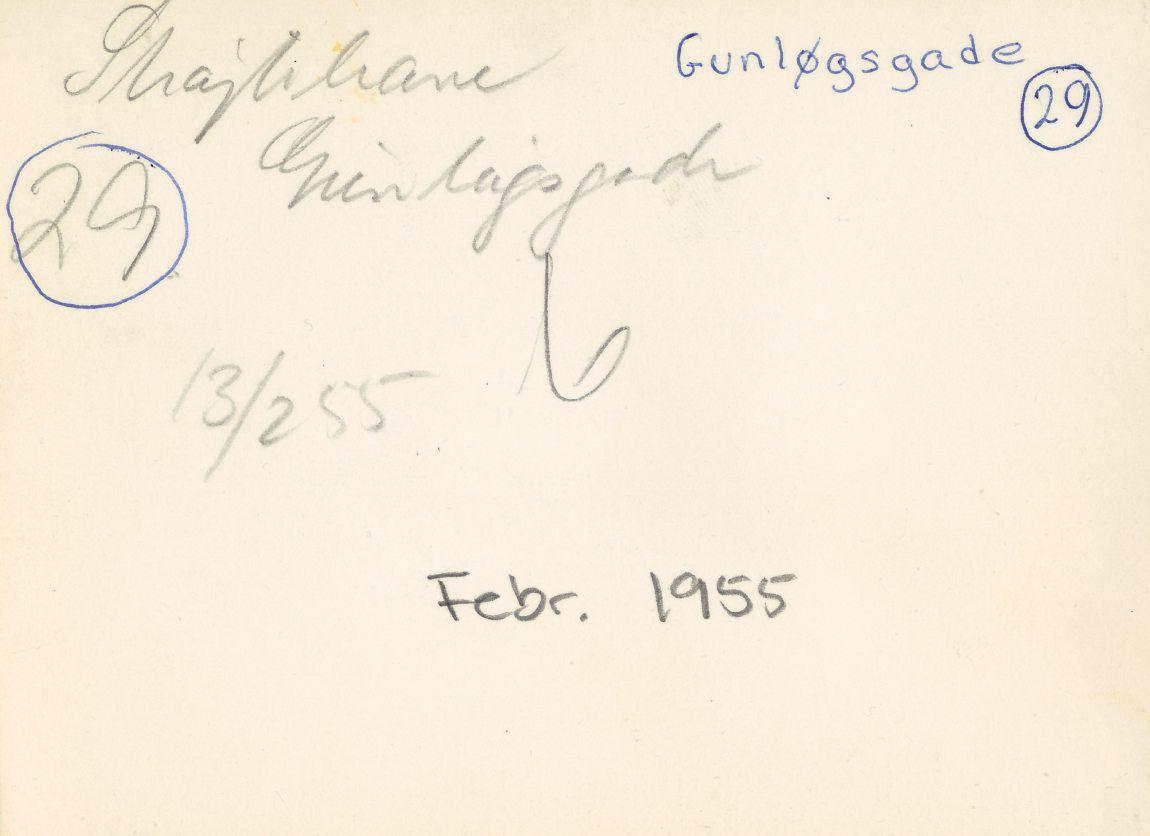 Gunløgsgade
29
Gunløgsgade
29
13/2 55
Febr. 1955